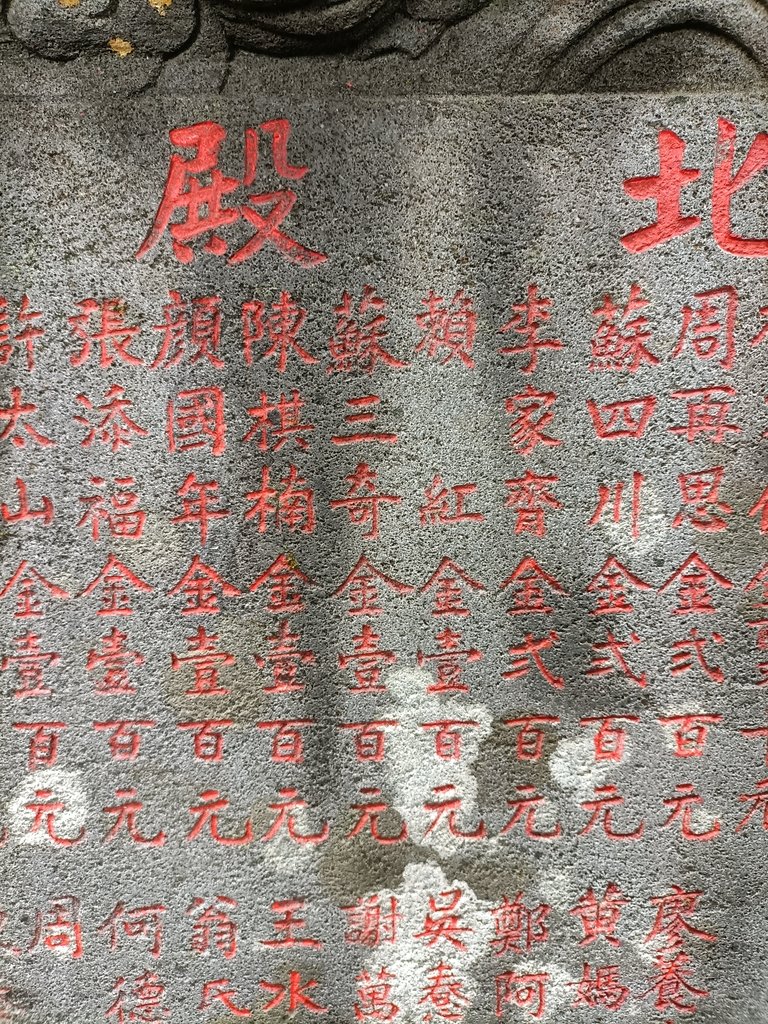 北殿
周再思金弍百元
蘇四川金弍百元
李家齊金弍百元
賴紅金壹百元
蘇三奇金壹百元
陳棋楠金壹百元
顏國年金壹百元
張添福金壹百元
許太山金壹百元
廖養
黃媽
鄭阿
吳春
謝萬
王水
翁氏
何德
周